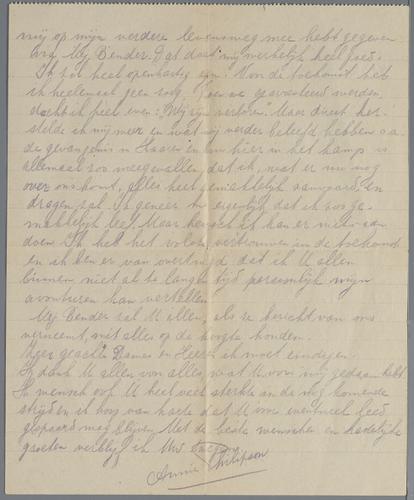 mij op mijn verdere levensweg mee hebt gegeven
Mej Bender. Dat doet mij werkelijk heel goed.
Ik zal heel openhartig zijn. Voor de toekomst heb
ik heelemaal geen zorg. Toen we gearresteerd werden
dacht ik heel even: "Wij zijn verloren." Maar direct her-
stelde ik mij weer en wat wij verder beleefd hebben o.a.
de gevangenis in Haaren en nu hier in het kamp is
allemaal zoo meegevallen dat ik, wat er nu nog
over ons komt, alles heel gemakkelijk aanvaard en
dragen zal. Ik geneer me eigenlijk dat ik zoo ge-
makkelijk leef. Maar heusch ik kan er niets aan
doen. Ik heb het volste vertrouwen in de toekomst
en ik ben er van overtuigd dat ik U allen
binnen niet al te langen tijd persoonlijk mijn
avonturen kan vertellen.
Mej Bender zal U allen, als ze bericht van ons
verneemt, met alles op de hoogte houden.
Zeer geachte Dames en Heeren ik moet eindigen.
Ik dank U allen voor alles, wat U voor mij gedaan hebt.
Ik wensch ook U heel veel sterkte in de nog komende
strijd en ik hoop van harte dat U voor eventueel leed
gespaard mag blijven. Met de beste wenschen en hartelijke
groeten verblijf ik Uw
Annie Philipson